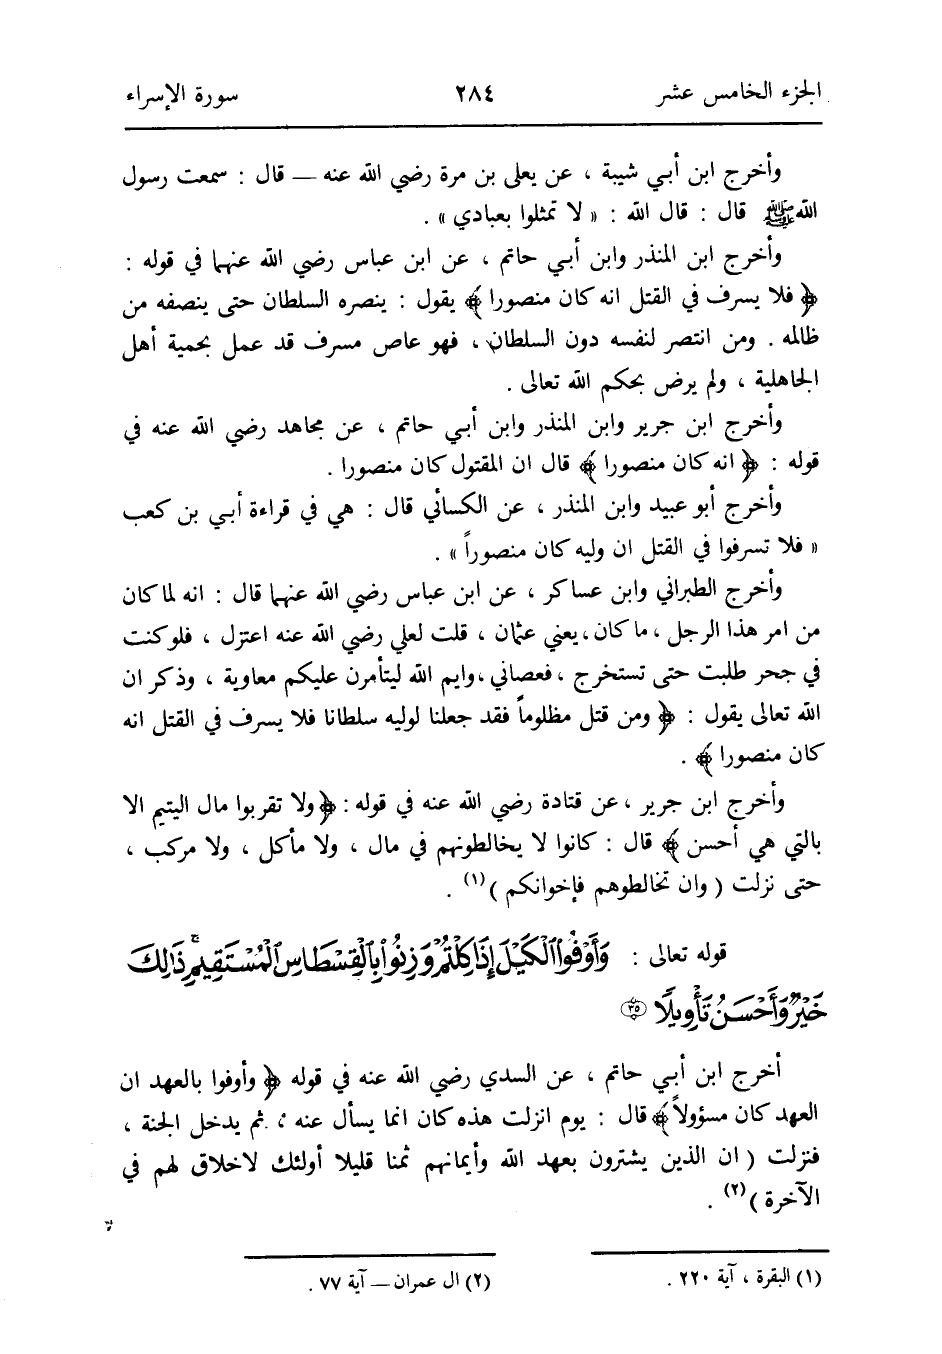 الجزء الخامس عشر ٢٨٤ سورة الإسراء
وأخرج ابن أبي شيبة ، عن يعلى بن مرة رضي الله عنه — قال : سمعت رسول
الله ﷺ قال : قال الله : « لا تمثلوا بعبادي » .
وأخرج ابن المنذر وابن أبي حاتم ، عن ابن عباس رضي الله عنهما في قوله :
﴿ فلا يسرف في القتل انه كان منصورا ﴾ يقول : ينصره السلطان حتى ينصفه من
ظالمه . ومن انتصر لنفسه دون السلطان ، فهو عاص مسرف قد عمل بحمية أهل
الجاهلية ، ولم يرض بحكم الله تعالى .
وأخرج ابن جرير وابن المنذر وابن أبي حاتم ، عن مجاهد رضي الله عنه في
قوله : ﴿ انه كان منصورا ﴾ قال ان المقتول كان منصورا .
وأخرج أبو عبيد وابن المنذر ، عن الكسائي قال : هي في قراءة أبي بن كعب
« فلا تسرفوا في القتل ان وليه كان منصوراً » .
وأخرج الطبراني وابن عساكر ، عن ابن عباس رضي الله عنهما قال : انه لما كان
من امر هذا الرجل ، ما كان ، يعني عثمان ، قلت لعلي رضي الله عنه اعتزل ، فلو كنت
في جحر طلبت حتى تستخرج ، فعصاني ، وايم الله ليتأمرن عليكم معاوية ، وذكر ان
الله تعالى يقول : ﴿ ومن قتل مظلوماً فقد جعلنا لوليه سلطانا فلا يسرف في القتل انه
كان منصورا ﴾ .
وأخرج ابن جرير ، عن قتادة رضي الله عنه في قوله : ﴿ ولا تقربوا مال اليتيم الا
بالتي هي أحسن ﴾ قال : كانوا لا يخالطونهم في مال ، ولا مأكل ، ولا مركب ،
حتى نزلت ( وان تخالطوهم فإخوانكم ) (١) .
قوله تعالى : وَأَوْفُوا۟ ٱلْكَيْلَ إِذَا كِلْتُمْ وَزِنُوا۟ بِٱلْقِسْطَاسِ ٱلْمُسْتَقِيمِ ۚ ذَٰلِكَ
خَيْرٌ وَأَحْسَنُ تَأْوِيلًا ٣٥
أخرج ابن أبي حاتم ، عن السدي رضي الله عنه في قوله ﴿ وأوفوا بالعهد ان
العهد كان مسؤولاً ﴾ قال : يوم انزلت هذه كان انما يسأل عنه ، ثم يدخل الجنة ،
فنزلت ( ان الذين يشترون بعهد الله وأيمانهم ثمنا قليلا أولئك لا خلاق لهم في
الآخرة ) (٢) .
(١) البقرة ، آية ٢٢٠ . (٢) ال عمران — آية ٧٧ .